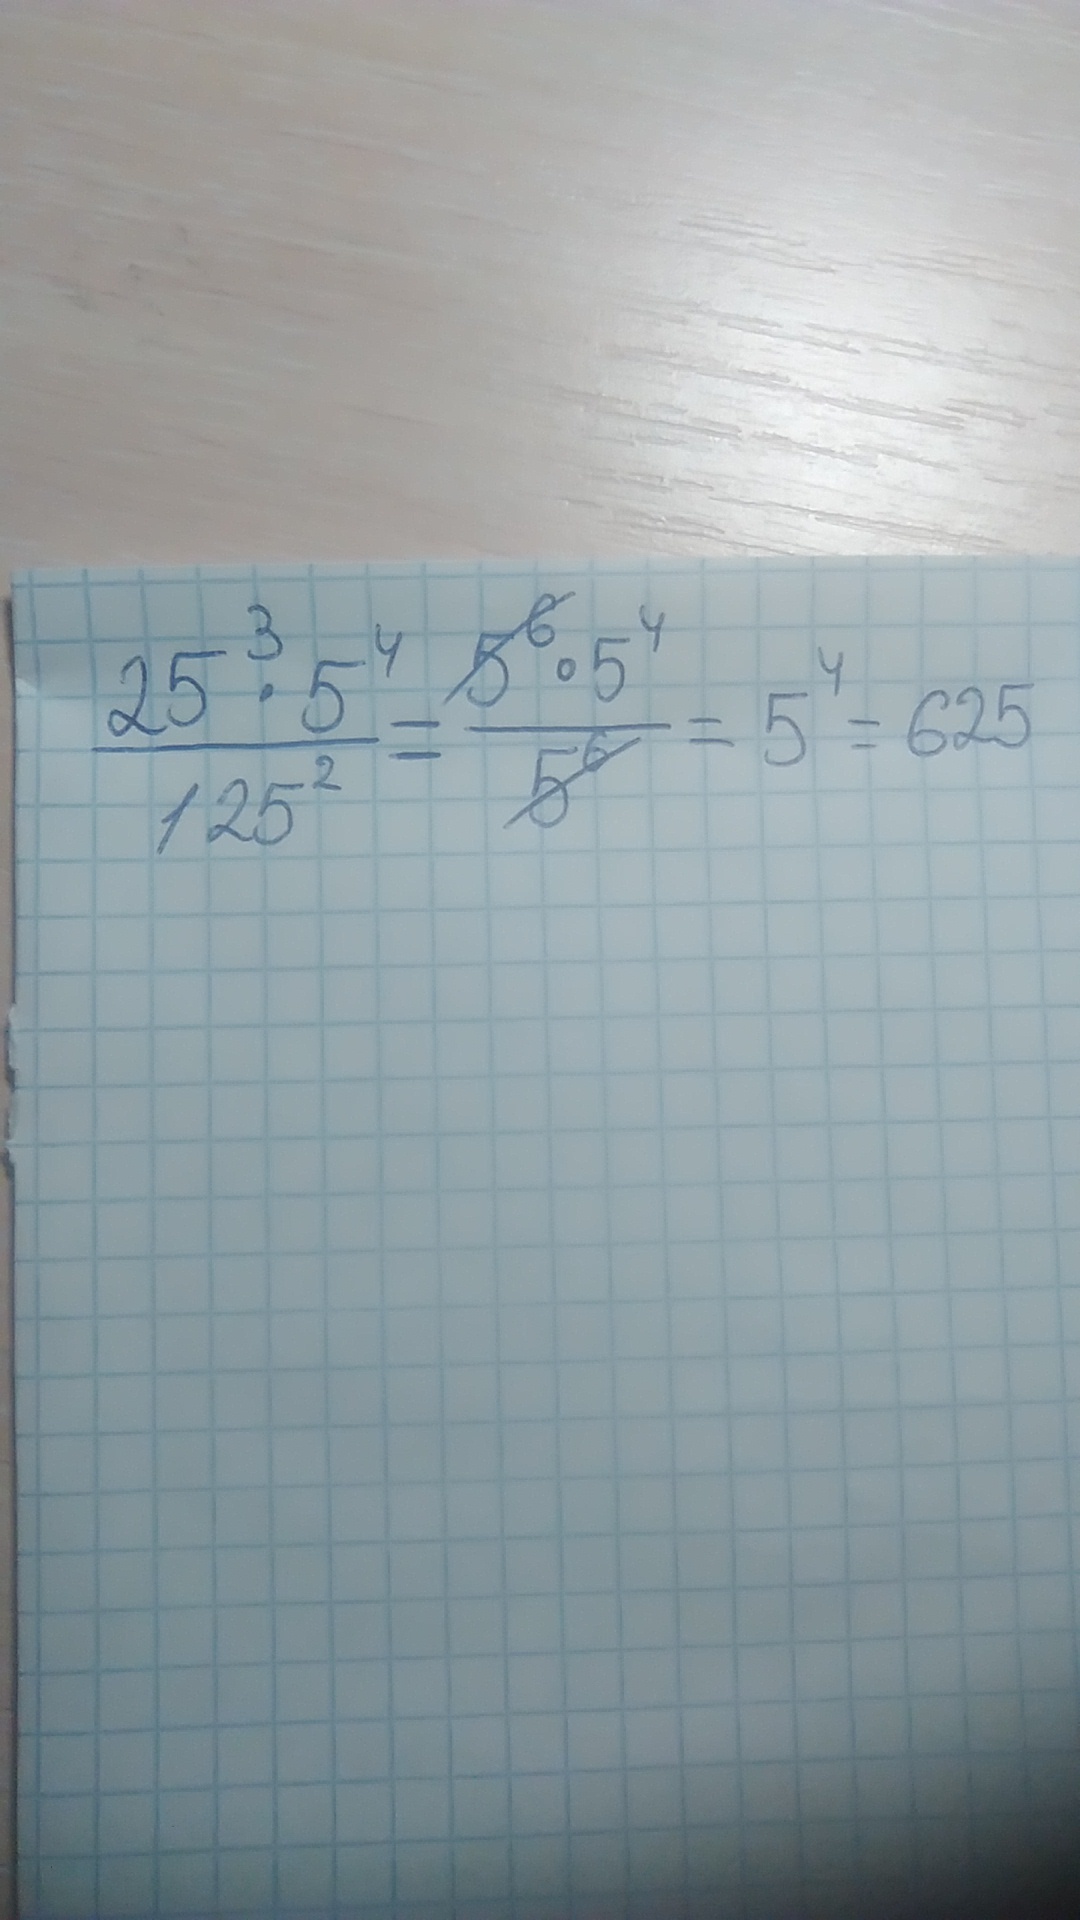 25³·5⁴/125² = 5⁶·5⁴/5⁶ = 5⁴ = 625